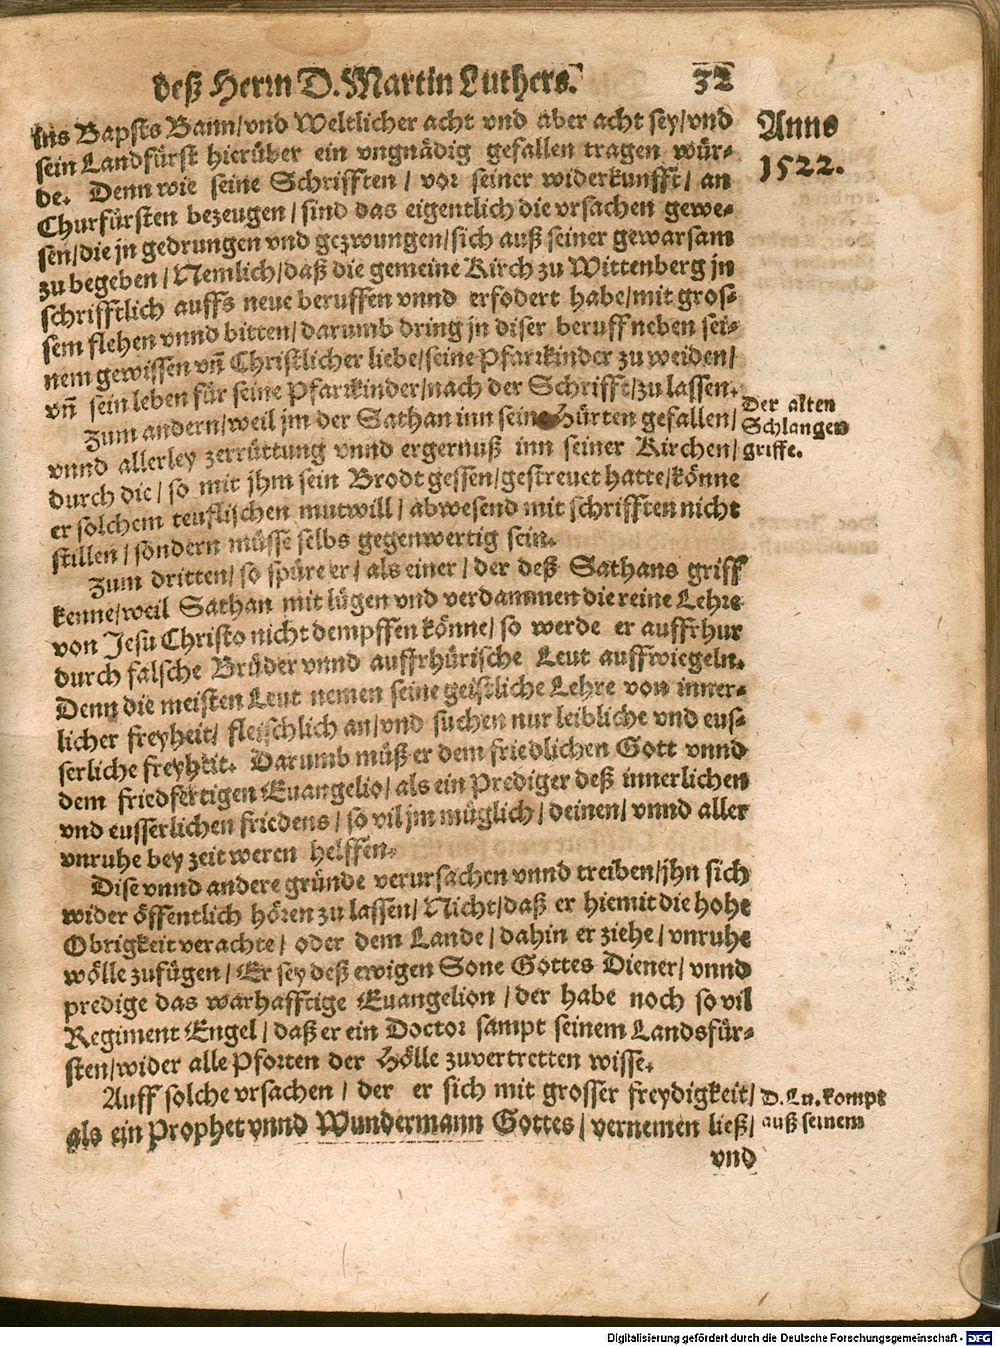 deß Herrn D. Martin Luthers. 32
ins Bapsts Bann/vnd Weltlicher acht vnd aber acht sey/vnd
Anno
1522.
sein Landfürst hierüber ein vngnädig gefallen tragen wür-
de. Denn wie seine Schrifften/ vor seiner widerkunfft/ an
Churfürsten bezeugen/ sind das eigentlich die vrsachen gewe-
sen/die jn gedrungen vnd gezwungen/sich auß seiner gewarsam
zu begeben/ Nemlich/daß die gemeine Kirch zu Wittenberg jn
schrifftlich auffs neue beruffen vnnd erfodert habe/mit gros-
sem flehen vnnd bitten/ darumb dring jn diser beruff neben sei-
nem gewissen vñ Christlicher liebe/seine Pfarrkinder zu weiden/
vñ sein leben für seine Pfarrkinder/nach der Schrifft/zu lassen.
Zum andern/weil jm der Sathan inn seine Hürten gefallen/
Der alten
Schlangen
griffe.
vnnd allerley zerrüttung vnnd ergernuß inn seiner Kirchen/
durch die/ so mit jhm sein Brodt gessen/gestreuet hatte/könne
er solchem teuflischen mutwill/ abwesend mit schrifften nicht
stillen/ sondern müsse selbs gegenwertig sein.
Zum dritten/ so spüre er/ als einer/ der deß Sathans griff
kenne/weil Sathan mit lügen vnd verdammen die reine Lehre
von Jesu Christo nicht dempffen könne/ so werde er auffrhur
durch falsche Brüder vnnd auffrhürische Leut auffwiegeln.
Denn die meisten Leut nemen seine geistliche Lehre von inner-
licher freyheit/ fleischlich an/vnd suchen nur leibliche vnd eus-
serliche freyheit. Darumb müß er dem friedlichen Gott vnnd
dem friedfertigen Euangelio/ als ein Prediger deß innerlichen
vnd eusserlichen friedens/ so vil jm müglich/ deinen/ vnnd aller
vnruhe bey zeit weren helffen.
Dise vnnd andere gründe verursachen vnnd treiben/jhn sich
wider öffentlich hören zu lassen/ Nicht/daß er hiemit die hohe
Obrigkeit verachte/ oder dem Lande/ dahin er ziehe/ vnruhe
wölle zufügen/ Er sey deß ewigen Sone Gottes Diener/ vnnd
predige das warhafftige Euangelion/ der habe noch so vil
Regiment Engel/ daß er ein Doctor sampt seinem Landsfür-
sten/wider alle Pforten der Hölle zuvertretten wisse.
Auff solche vrsachen/ der er sich mit grosser freydigkeit/
als ein Prophet vnnd Wundermann Gottes/ vernemen ließ/
D. Lu. kompt
auß seinem
vnd
Digitalisierung gefördert durch die Deutsche Forschungsgemeinschaft - DFG